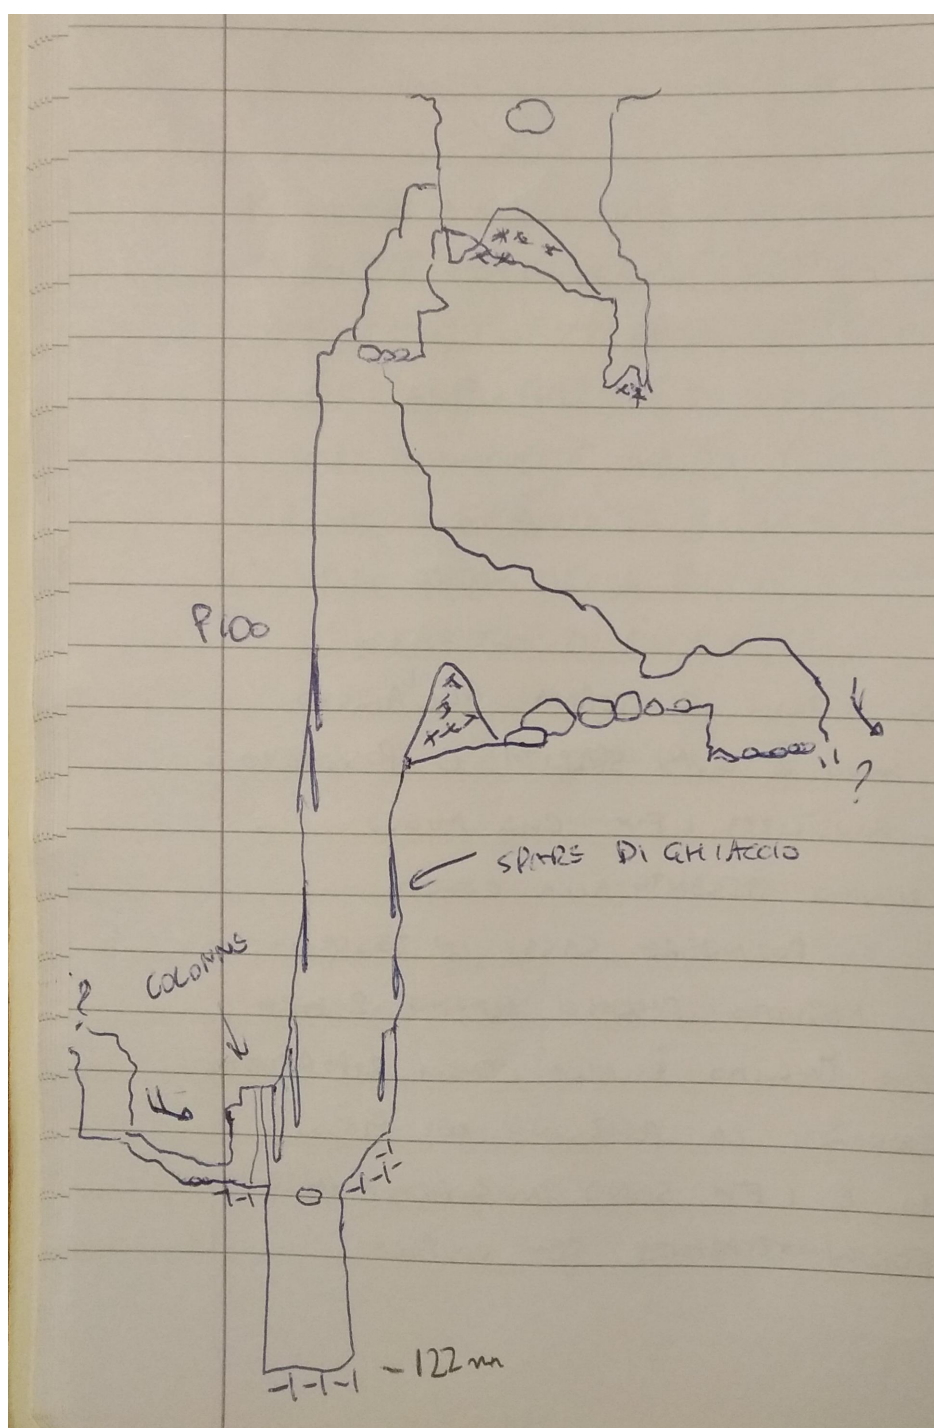 P100
?
SPADE DI GHIACCIO
COLONNE
?
-122 m